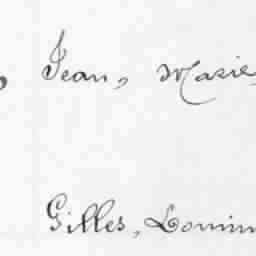 , Jean, Marie,
Gilles, Lomin